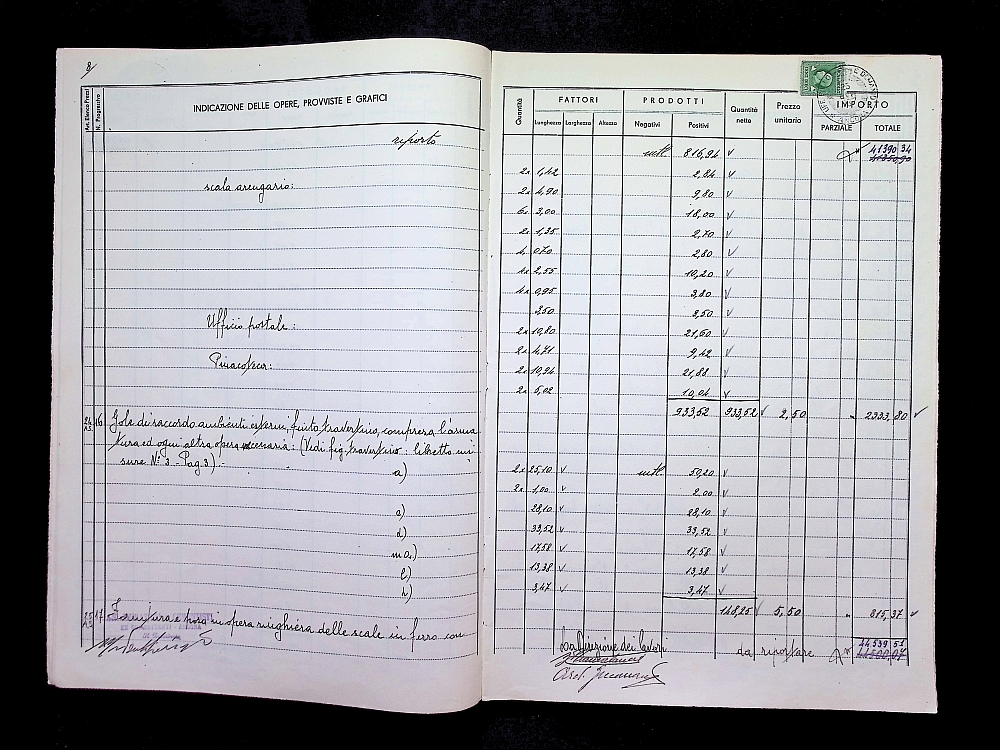 8
Art. Elenco Prezzi
N. Progressivo
INDICAZIONE DELLE OPERE, PROVVISTE E GRAFICI
riporto
scala arengario:
Ufficio postale:
Pinacoteca:
16 Gole di raccordo ambienti esterni, finto travertino, compresa l'arma
tura ed ogni altra opera necessaria: (Vedi fig. travertino: libretto mi
sure N° 3 - Pag 3).-
a)
c)
d)
l)
17 Fornitura e posa in opera ringhiera delle scale in ferro con
Quantità
FATTORI
PRODOTTI
Quantità nette
Prezzo unitario
IMPORTO
Lunghezza Larghezza Altezza Negativi Positivi PARZIALE TOTALE
mtl. 816,94 41390 34
2x 1,42 2,84
2x 4,90 9,80
6x 3,00 18,00
2x 1,35 2,70
4x 0,70 2,80
4x 2,55 10,20
4x 0,95 3,80
3,50 3,50
2x 10,80 21,60
2x 4,71 9,42
2x 10,94 21,88
2x 5,02 10,04
933,52 933,52 2,50 2333,80
2x 25,10 mtl. 50,20
2x 1,00 2,00
28,10 28,10
33,52 33,52
17,58 17,58
13,38 13,38
3,47 3,47
148,25 5,50 815,37
La Direzione dei lavori da riportare 44539,51